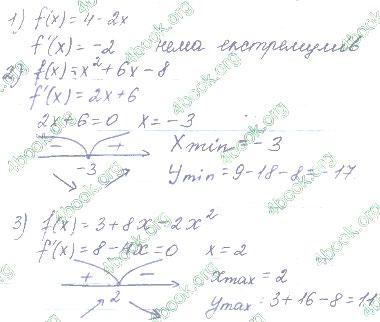 1) f(x) = 4 - 2x
f'(x) = -2 нема екстремумів
2) f(x) = x² + 6x - 8
f'(x) = 2x + 6
2x + 6 = 0 x = -3
- +
-3
xmin = -3
ymin = 9 - 18 - 8 = -17
3) f(x) = 3 + 8x - 2x²
f'(x) = 8 - 4x = 0 x = 2
+ -
2
xmax = 2
ymax = 3 + 16 - 8 = 11
4book.org